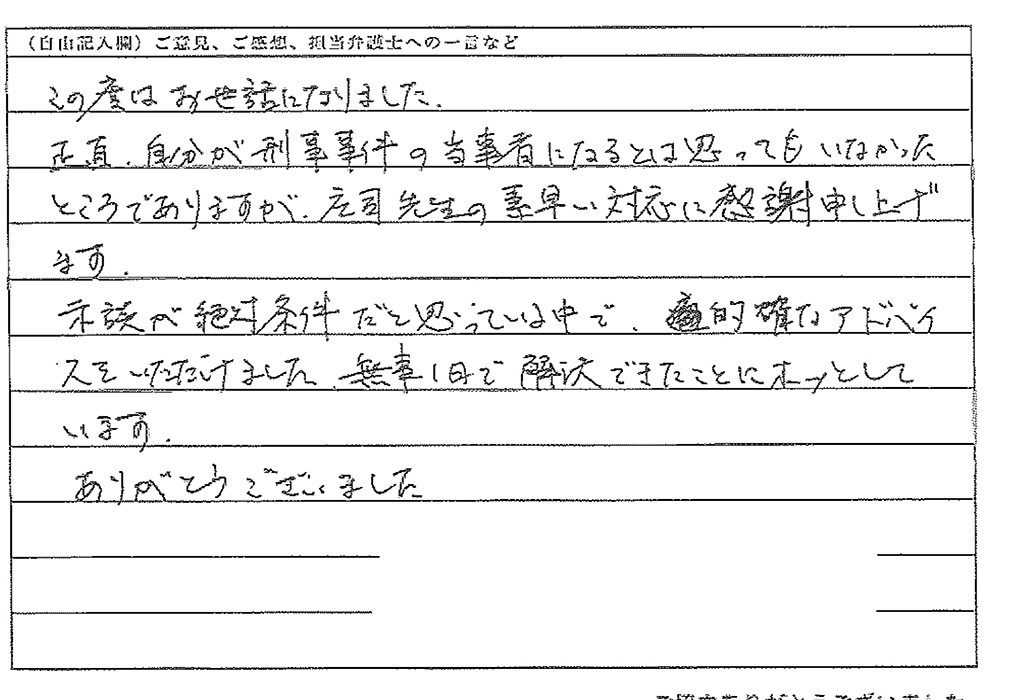 （自由記入欄）ご意見、ご感想、担当弁護士への一言など
この度はお世話になりました.
正直.自分が刑事事件の当事者になるとは思ってもいなかった
ところでありますが.庄司先生の素早い対応に感謝申し上げ
ます.
示談が絶対条件だと思っている中で.的確なアドバイ
スをいただけました.無事1日で解決できたことにホッとして
います.
ありがとうございました
ご協力ありがとうございました